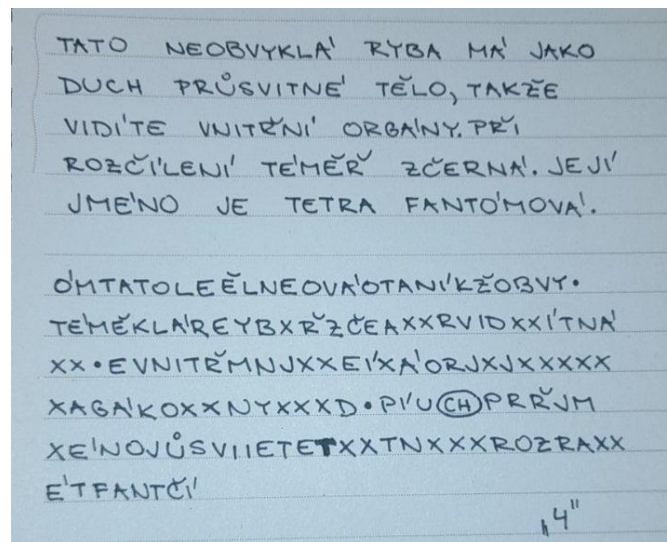 TATO NEOBVYKLÁ RYBA MÁ JAKO
DUCH PRŮSVITNÉ TĚLO, TAKŽE
VIDÍTE VNITŘNÍ ORGÁNY. PŘI
ROZČÍLENÍ TÉMĚŘ ZČERNÁ. JEJÍ
JMÉNO JE TETRA FANTÓMOVÁ.
ÓMTATOLEĚLNEOVÁOTANÍKŽOBVY.
TÉMĚKLÁREYBXŘZČEAXXRVIDXXÍTNÁ
XX.EVNITŘMNJXXEÍXÁORJXJXXXXX
XAGÁKOXXNYXXXD.PÍUCHPRŘJM
XÉNOJŮSVIIETETXXTNXXXROZRAXX
ÉTFANTČÍ
„4"